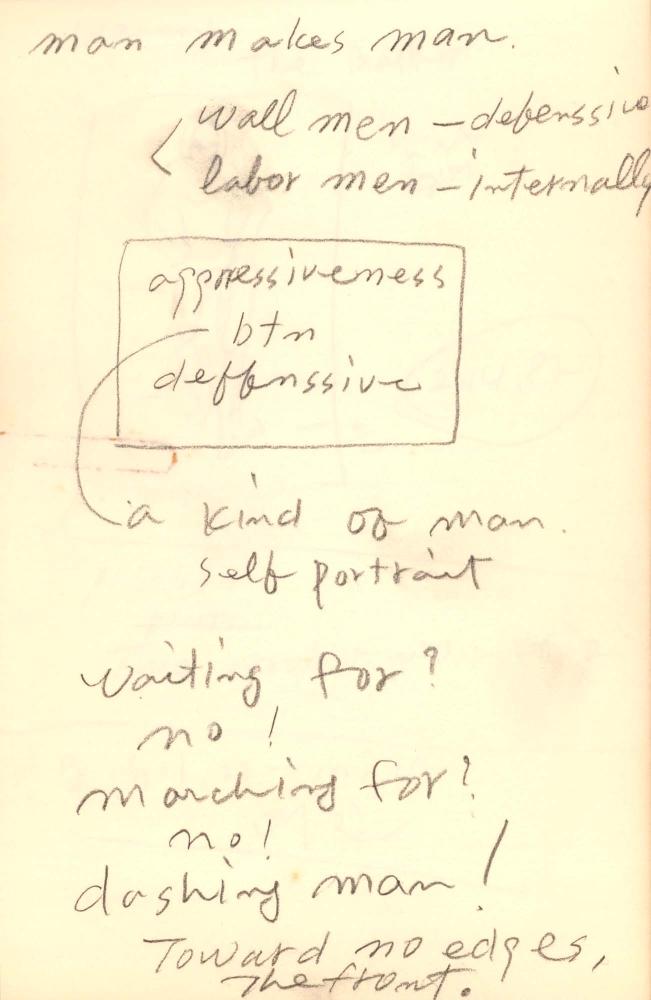 man makes man.
wall men - defenssive
labor men - internally
aggressiveness
btn
deffenssive
a kind of man.
self portrait
waiting for?
no!
marching for?
no!
dashing man!
Toward no edges,
The front.